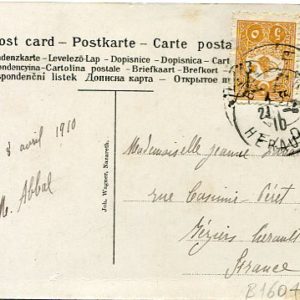 ost card – Postkarte – Carte posta
ndenzkarte – Levelező-Lap – Dopisnice – Dopisnica – Cart
ondencyina – Cartolina postale – Briefkaart – Brefkort
spondenční listek – Дописна карта – Открытое п
5
5
21
10
HERAU
8 avril 1910
M. Abbal
Joh. Wagner, Nazareth.
Mademoiselle Jeanne
rue Casimir Péret
Béziers Herault
France
B1604